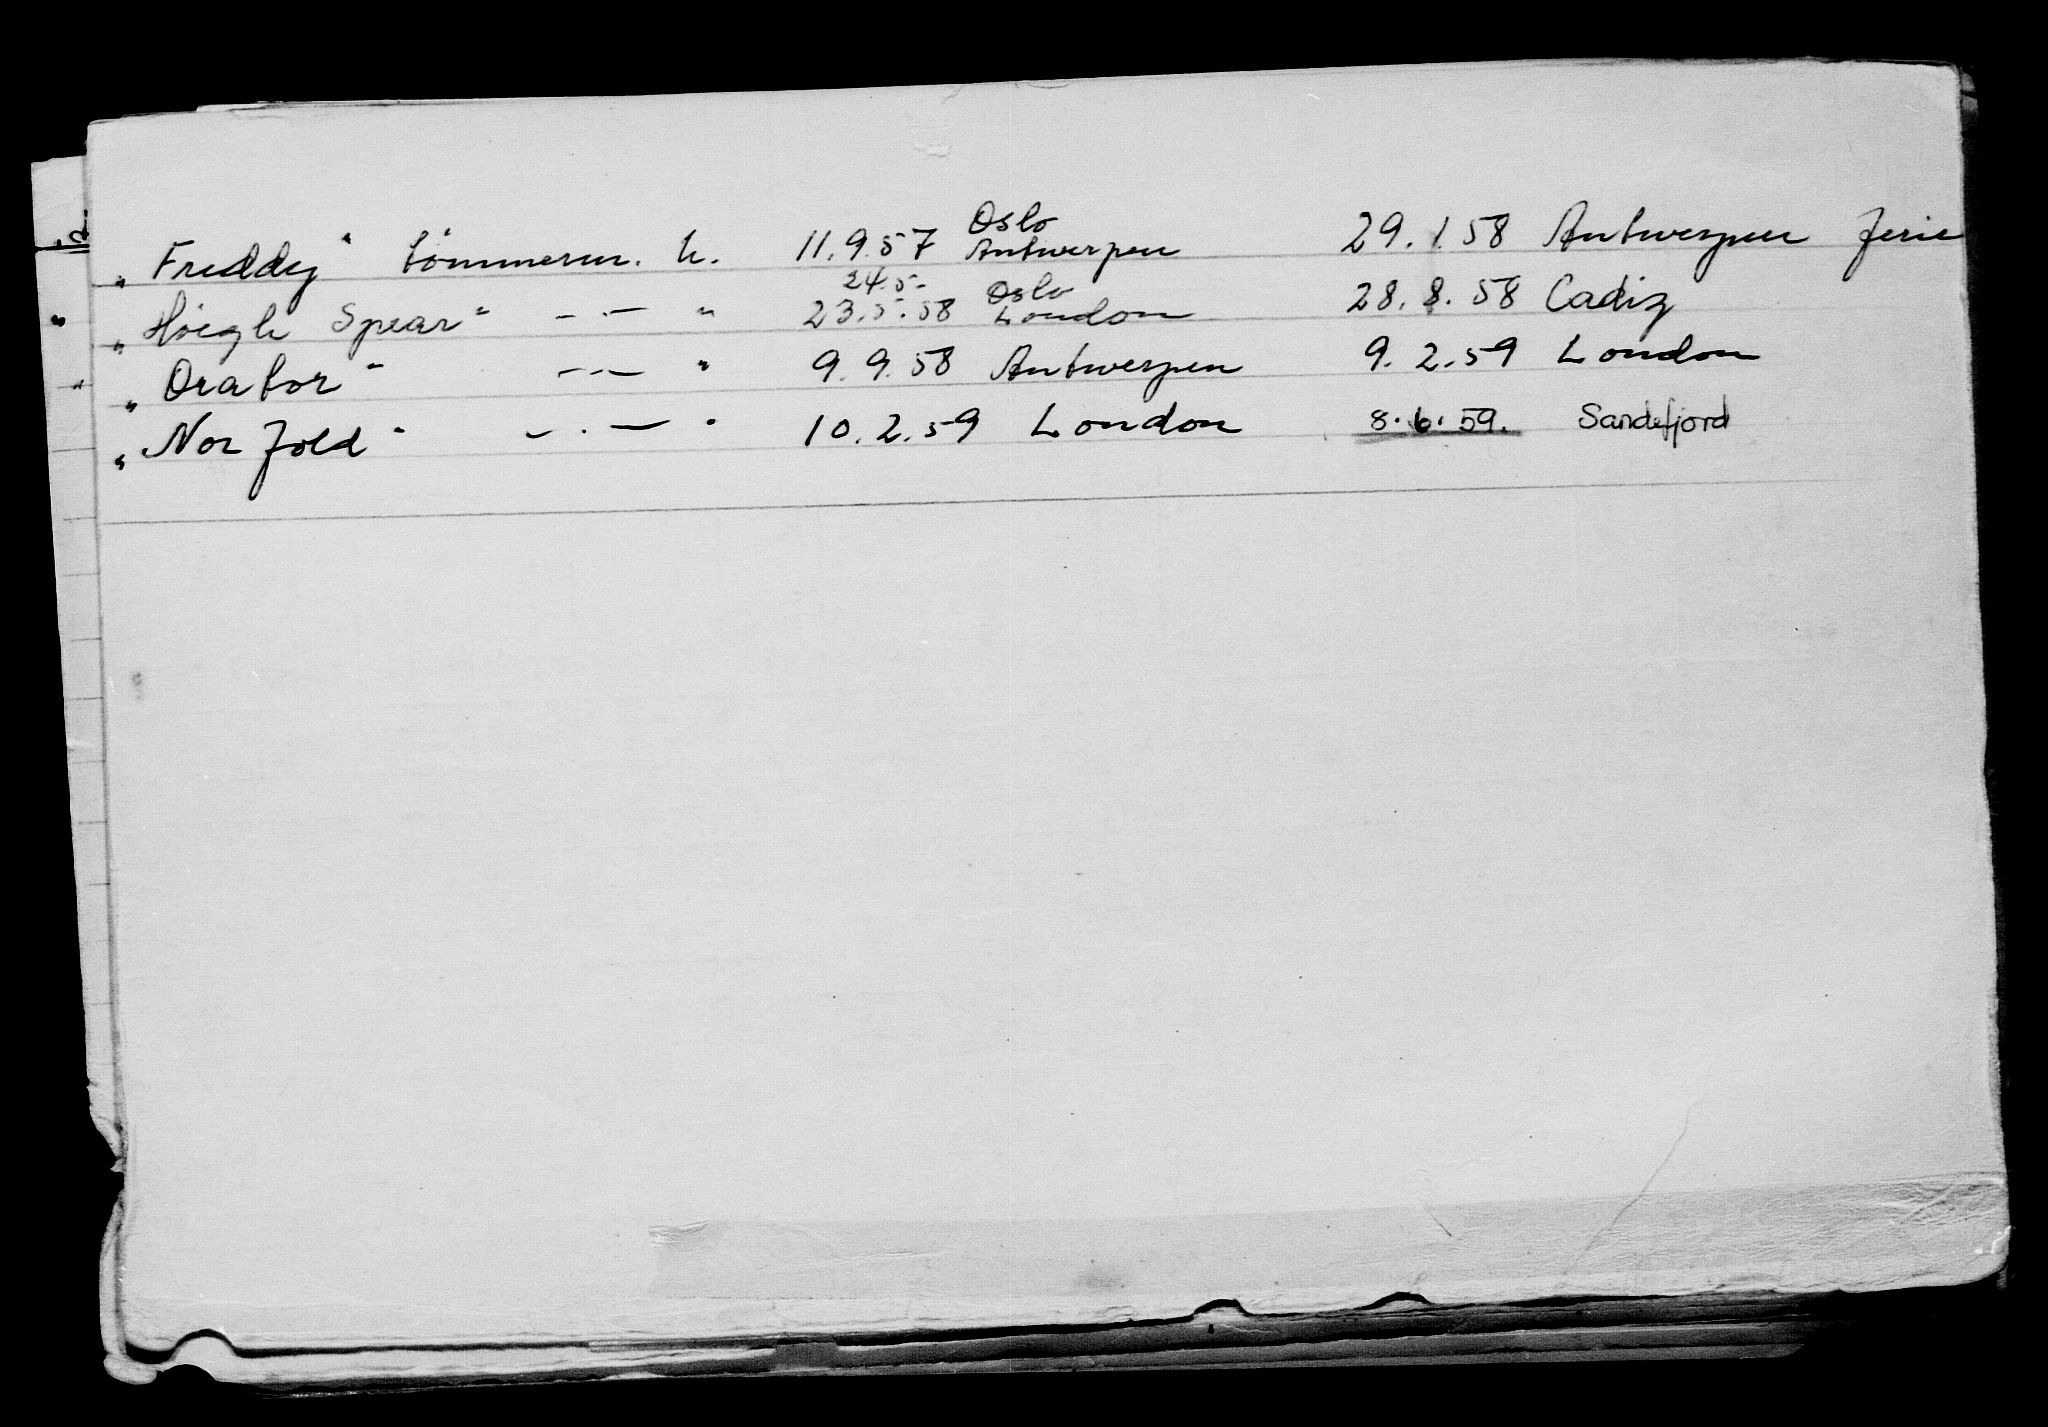 „Freddy" tömmerm. h. 11.9.57 Oslo Antwerpen 29.1.58 Antwerpen ferie
„Höegh Spear" — . — " 24.5- 23.5.58 Oslo London 28.8.58 Cadiz
„Orator" — . — " 9.9.58 Antwerpen 9.2.59 London
„Norfold" — . — " 10.2.59 London 8.6.59. Sandefjord